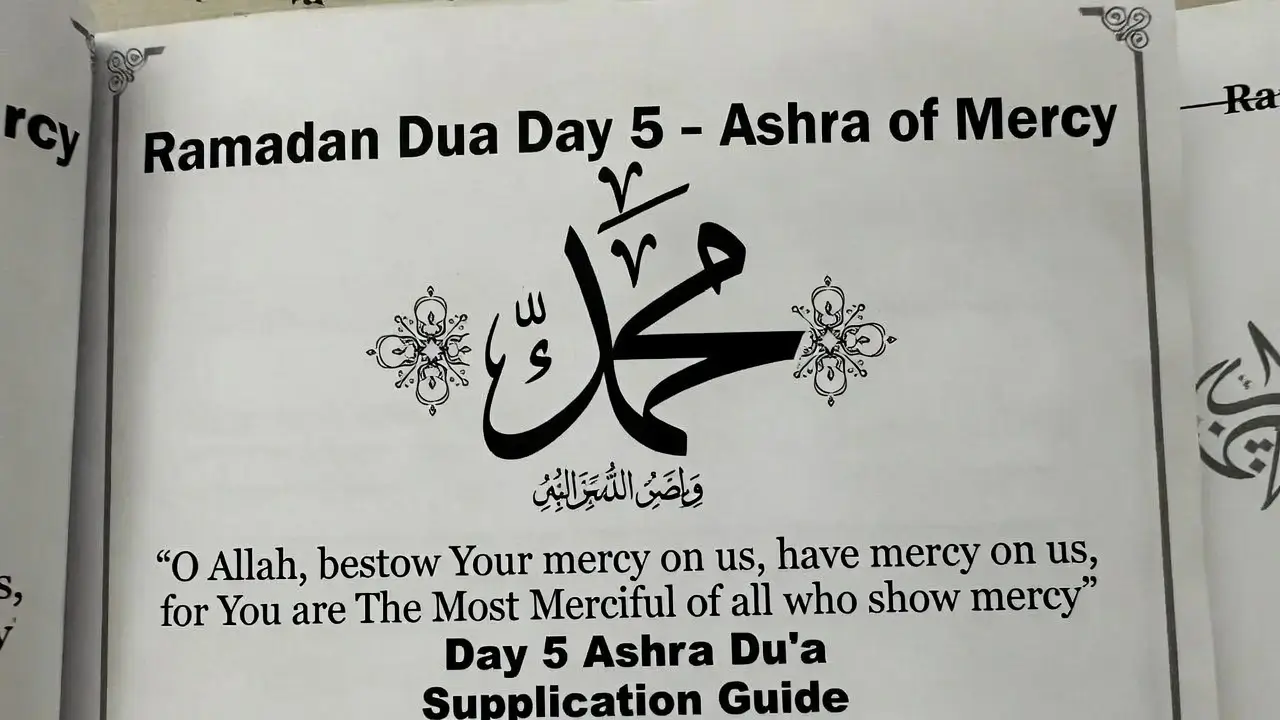 Ramadan Dua Day 5 – Ashra of Mercy
محمد
“O Allah, bestow Your mercy on us, have mercy on us,
for You are The Most Merciful of all who show mercy”
Day 5 Ashra Du'a
Supplication Guide
rcy
s,
y
Ra